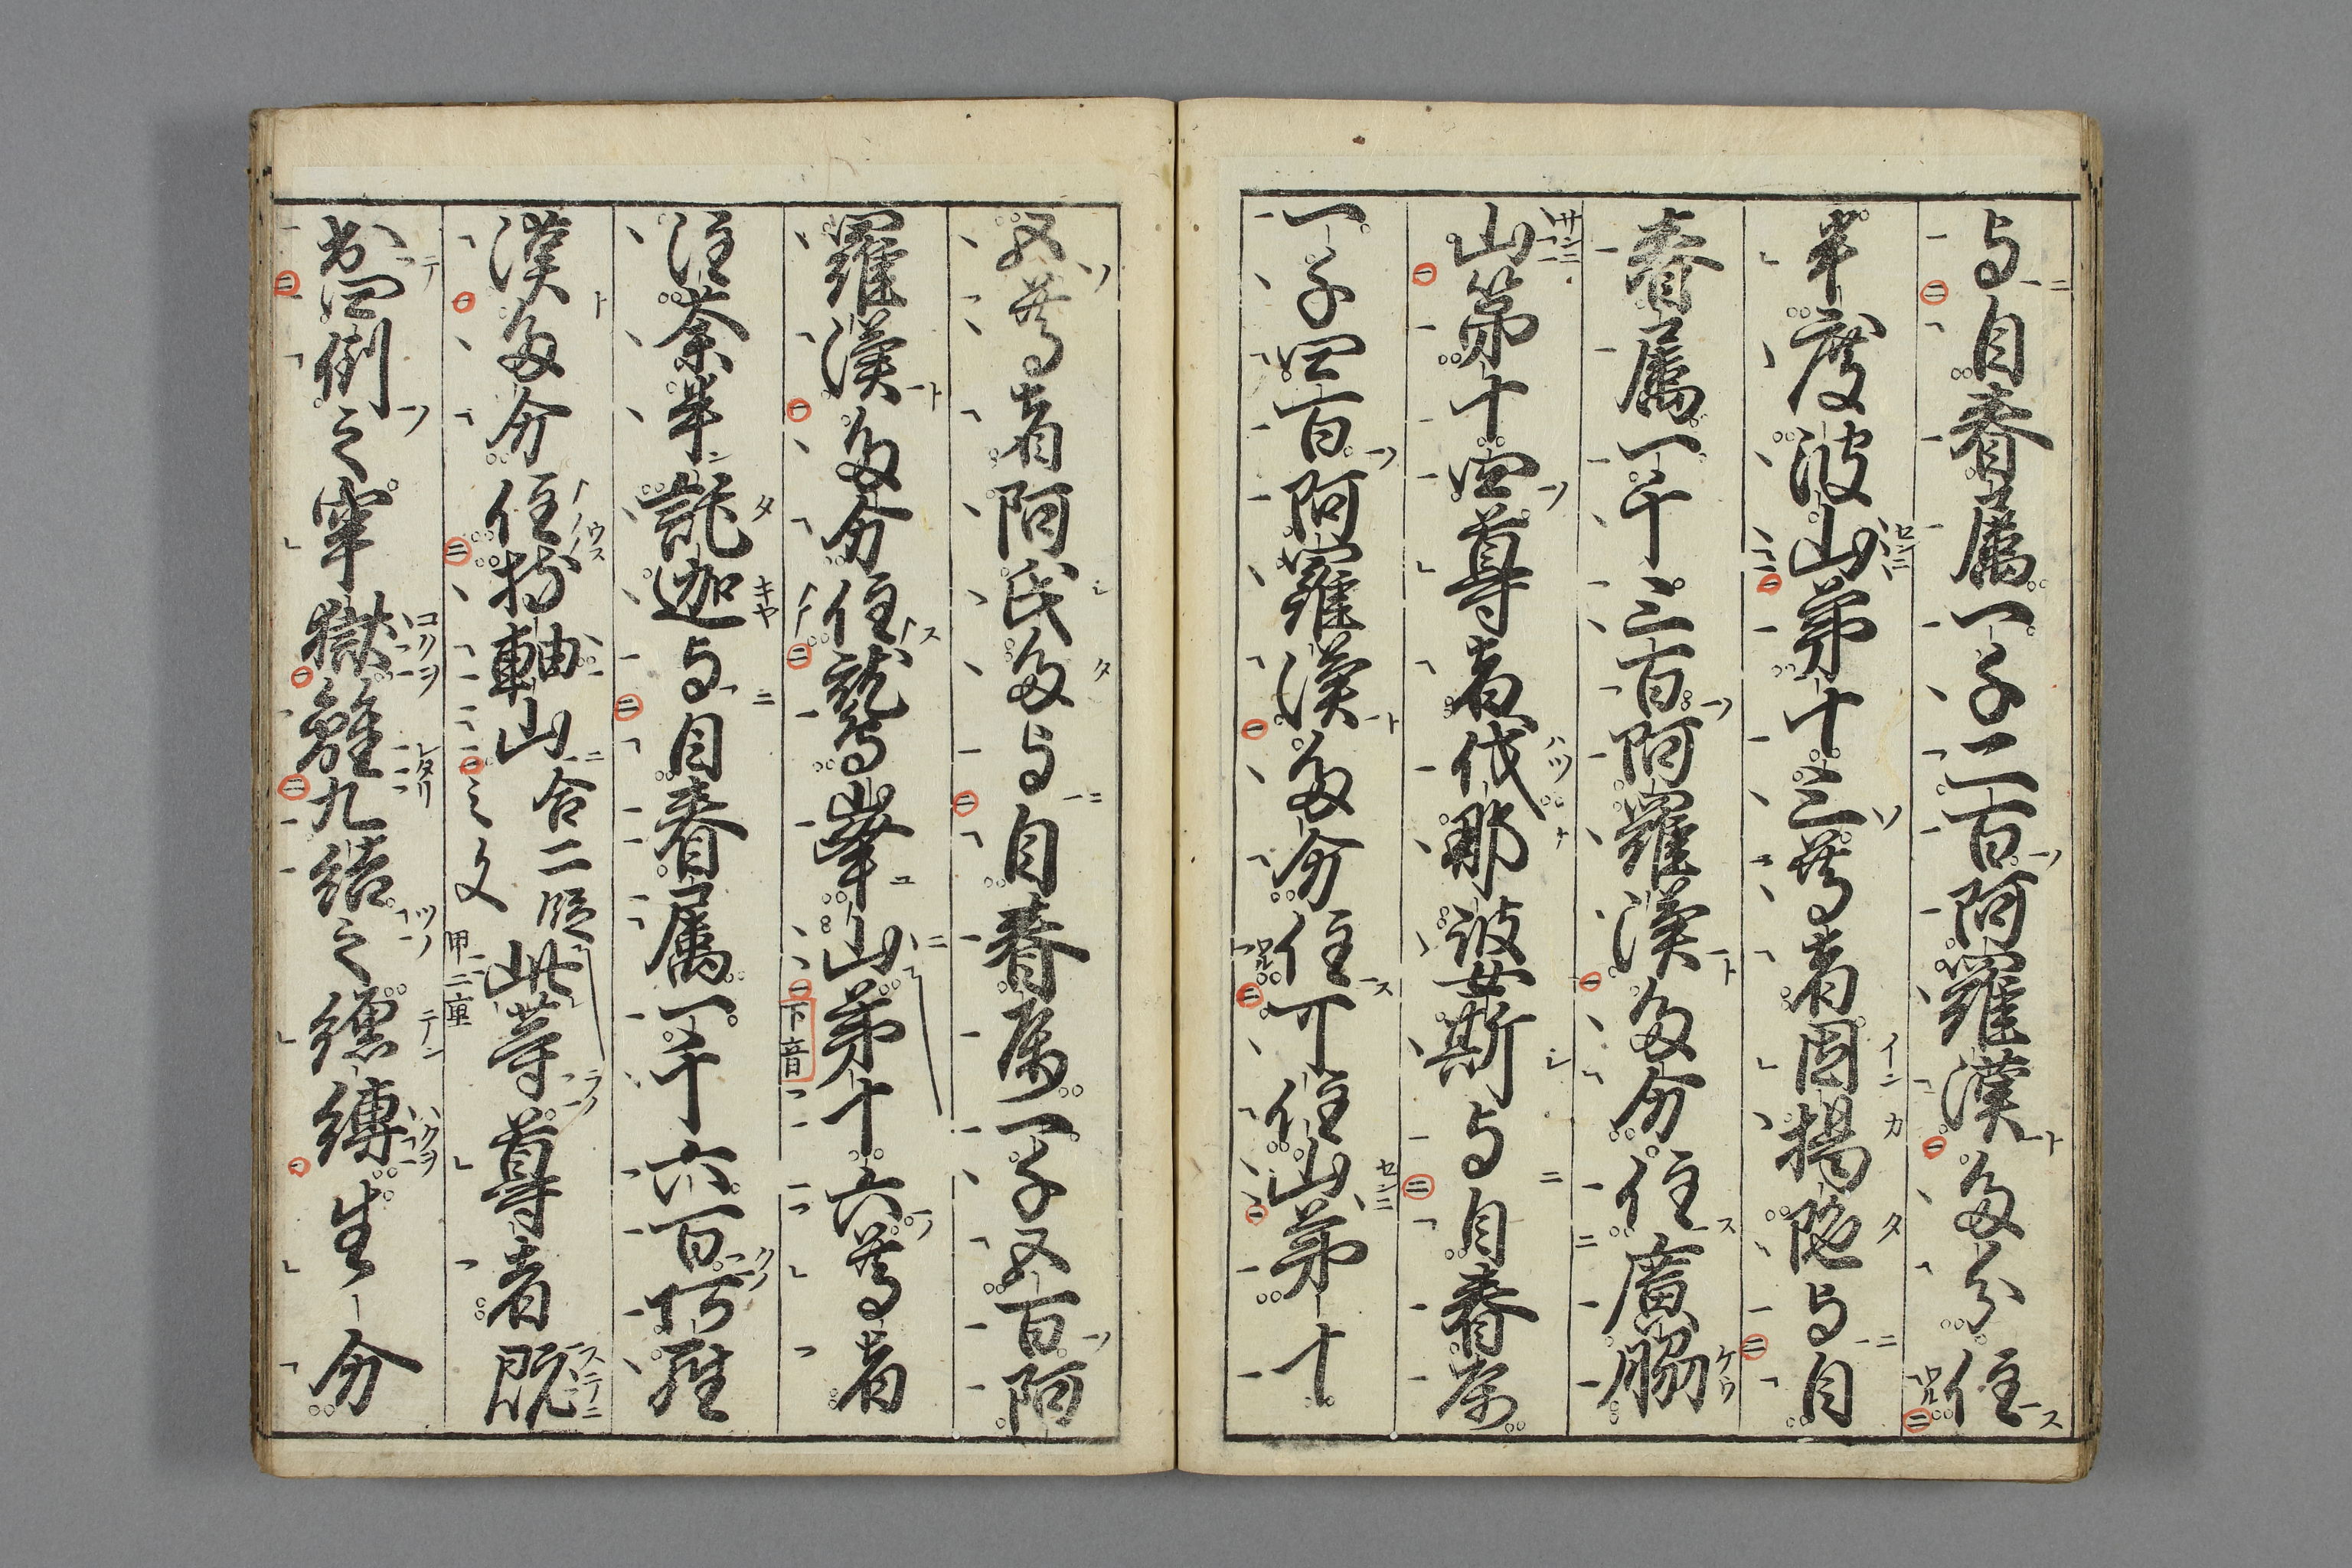 与自眷属一千二百阿羅漢多分住
半度波山第十三尊者因揭陀与自
眷属一千三百阿羅漢多分住廣脇
山第十四尊者伐那婆斯与自眷属
一千四百阿羅漢多分住可住山第十
五尊者阿氏多与自眷属一千五百阿
羅漢多分住鷲峯山第十六尊者
下音
注荼半託迦与自眷属一千六百阿羅
漢多分住持軸山合二之文此等尊者既
甲二重
出四倒之牢獄離九結之纏縛生分